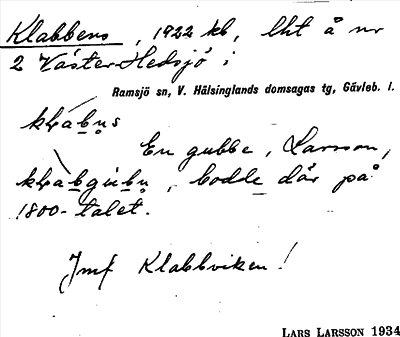 Klabbens, 1922 kb, lht å nr
2 Väster-Hedsjö i
Ramsjö sn, V. Hälsinglands domsagas tg, Gävleb. l.
En gubbe, Larsson,
bodde där på
1800-talet.
Jmf Klabbviken!
LARS LARSSON 1934